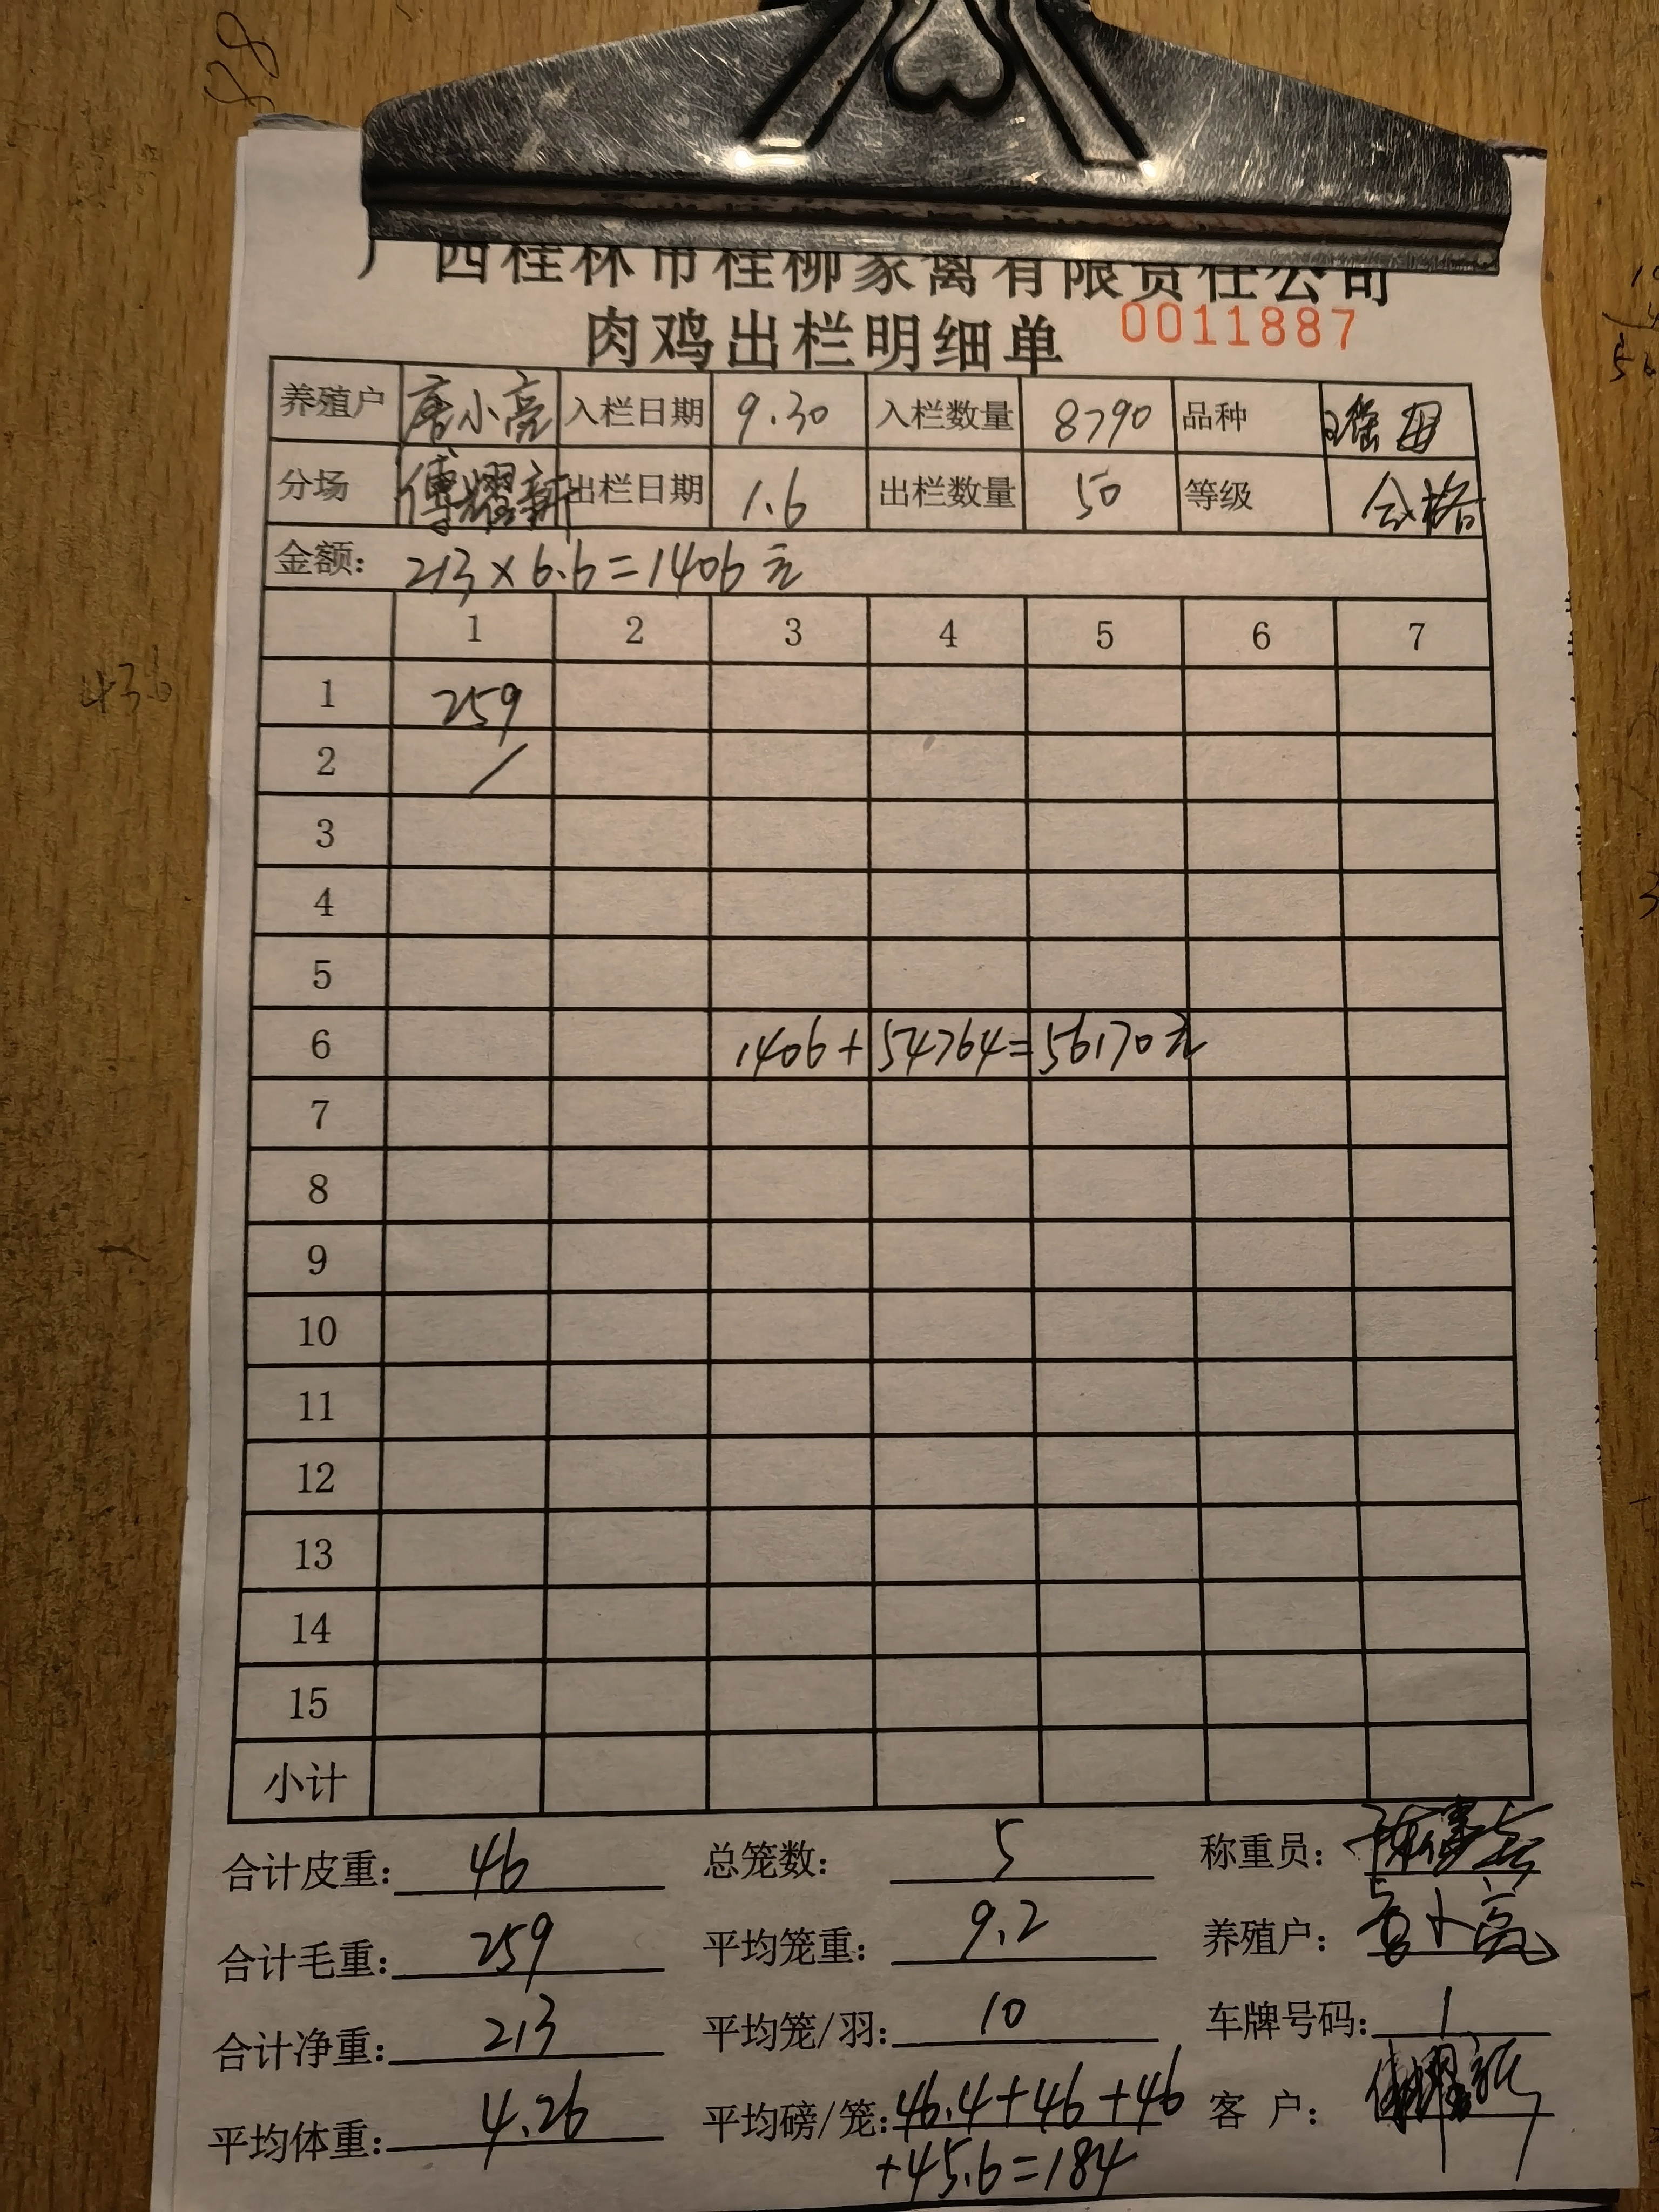 广西桂林市桂柳家禽有限责任公司
肉鸡出栏明细单 0011887
养殖户 唐小亮 入栏日期 9.30 入栏数量 8790 品种 瑶母
分场 傅耀新 出栏日期 1.6 出栏数量 50 等级 合格
金额: 213×6.6=1406元
1 2 3 4 5 6 7
1 259
2 /
3
4
5
6 1406+54764=56170元
7
8
9
10
11
12
13
14
15
小计
合计皮重: 46 总笼数: 5 称重员:
合计毛重: 259 平均笼重: 9.2 养殖户: 唐小亮
合计净重: 213 平均笼/羽: 10 车牌号码: 1
平均体重: 4.26 平均磅/笼: 46.4+46+46 客 户: 傅耀新
+45.6=184
48
43.6